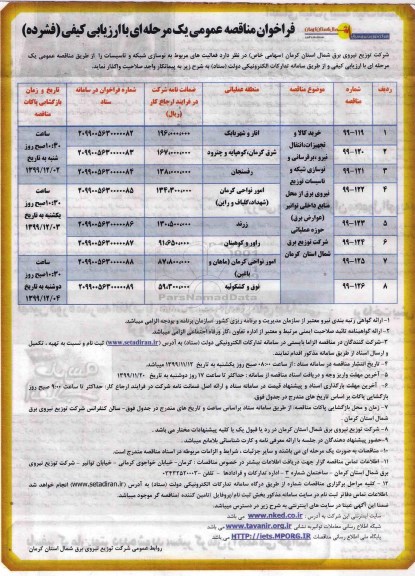 فراخوان مناقصه عمومی یک مرحله ای با ارزیابی کیفی (فشرده)
شرکت توزیع نیروی برق شمال استان کرمان (سهامی خاص) در نظر دارد فعالیت های مربوط به نوسازی شبکه و تاسیسات را از طریق مناقصه عمومی یک
مرحله ای با ارزیابی کیفی و از طریق سامانه تدارکات الکترونیکی دولت (ستاد) به شرح زیر به پیمانکار واجد صلاحیت واگذار نماید.
ردیف | شماره مناقصه | موضوع مناقصه | منطقه عملیاتی | ضمانت نامه شرکت در فرایند ارجاع کار (ریال) | شماره فراخوان در سامانه ستاد | تاریخ و زمان بازگشایی پاکات مناقصه
خرید کالا و تجهیزات، انتقال نیرو، بهره برداری و نوسازی شبکه و تاسیسات توزیع نیروی برق از محل منابع داخلی توانیر (عوارض برق) حوزه عملیاتی شرکت توزیع برق شمال استان کرمان
۱ | ۹۹-۱۱۹ | انار و شهربابک | ۱۹۶۰۰۰۰۰۰۰ | ۲۰۹۹۰۰۵۶۳۰۰۰۰۰۸۲
۲ | ۹۹-۱۲۰ | شرق کرمان، کوهپایه و چترود | ۱۶۷۰۰۰۰۰۰۰ | ۲۰۹۹۰۰۵۶۳۰۰۰۰۰۸۳
ساعت ۱۰:۳۰ صبح روز شنبه به تاریخ ۱۳۹۹/۱۲/۰۲
۳ | ۹۹-۱۲۱ | رفسنجان | ۲۰۹۹۰۰۵۶۳۰۰۰۰۰۸۴
۴ | ۹۹-۱۲۲ | امور نواحی کرمان (شهداد، گلباف و راین) | ۲۰۹۹۰۰۵۶۳۰۰۰۰۰۸۵
۵ | ۹۹-۱۲۳ | زرند | ۲۰۹۹۰۰۵۶۳۰۰۰۰۰۸۶
ساعت ۱۰:۳۰ صبح روز یکشنبه به تاریخ ۱۳۹۹/۱۲/۰۳
۶ | ۹۹-۱۲۴ | راور و کوهبنان | ۲۰۹۹۰۰۵۶۳۰۰۰۰۰۸۷
۷ | ۹۹-۱۲۵ | امور نواحی کرمان (ماهان و باغین) | ۲۰۹۹۰۰۵۶۳۰۰۰۰۰۸۸
۸ | ۹۹-۱۲۶ | نوق و کشکوئیه | ۲۰۹۹۰۰۵۶۳۰۰۰۰۰۸۹
ساعت ۱۰:۳۰ صبح روز دوشنبه به تاریخ ۱۳۹۹/۱۲/۰۴
ParsNamadData
۱- ارائه گواهی رتبه بندی نیرو معتبر از سازمان مدیریت و برنامه ریزی کشور (سازمان برنامه و بودجه) الزامی میباشد.
۲- ارائه گواهینامه تائید صلاحیت ایمنی مرتبط و معتبر از اداره تعاون، کار و رفاه اجتماعی الزامی میباشد.
۳- شرکت کنندگان در مناقصه الزاما بایستی در سامانه تدارکات الکترونیکی دولت (ستاد) به آدرس (www.setadiran.ir) ثبت نام و نسبت به تهیه، تکمیل
و ارسال اسناد از طریق سامانه مذکور اقدام نمایند.
۴- تاریخ انتشار مناقصه در سامانه ستاد: از ساعت ۰۸:۰۰ صبح روز یکشنبه به تاریخ ۱۳۹۹/۱۱/۱۲ میباشد.
۵- آخرین مهلت واریز وجه و دریافت اسناد مناقصه از سامانه: حداکثر تا ساعت ۱۷ روز دوشنبه به تاریخ ۱۳۹۹/۱۱/۲۰
۶- آخرین مهلت بارگذاری اسناد و پیشنهاد قیمت در سامانه ستاد و ارائه اصل ضمانت نامه شرکت در فرایند ارجاع کار: حداکثر تا ساعت ۹:۰۰ صبح روز
بازگشایی پاکات بر اساس تاریخ های مندرج در جدول فوق
۷- زمان و محل بازگشایی پاکات مناقصه: از طریق سامانه ستاد براساس ساعت و تاریخ های مندرج در جدول فوق - سالن کنفرانس شرکت توزیع نیروی برق
شمال استان کرمان
۸- شرکت توزیع نیروی برق شمال استان کرمان در رد یا قبول یک یا کلیه پیشنهادات مختار می باشد.
۹- حضور پیشنهاد دهندگان در جلسه با ارائه معرفی نامه و کارت شناسائی بلامانع میباشد.
۱۰- مناقصات به صورت یک مرحله ای می باشند و سایر جزئیات، شرایط و الزامات مربوطه در اسناد مناقصه مندرج است.
۱۱- اطلاعات تماس مناقصه گزار جهت دریافت اطلاعات بیشتر در خصوص مناقصات: کرمان - خیابان خواجوی کرمانی - خیابان توانیر - شرکت توزیع نیروی
برق شمال استان کرمان - ساختمان شماره ۳ - اداره مناقصات و قراردادها - تلفن: ۰۳۴۳۲۵۲۰۰۰۳ می باشد.
۱۲ - کلیه مراحل برگزاری مناقصات شماره از طریق درگاه سامانه تدارکات الکترونیکی دولت (ستاد) به آدرس (www.setadiran.ir) انجام خواهد شد
اطلاعات تماس دفاتر ثبت نام در سایت سامانه مذکور بخش ثبت نام/پروفایل (تامین کننده/مناقصه گر) موجود میباشد.
ضمنا این آگهی عینا در سایت های اینترنتی به شرح زیر در دسترس میباشد.
سایت اینترنتی این شرکت به آدرس www.nked.co.ir
شبکه اطلاع رسانی معاملات توانیر به نشانی www.tavanir.org.ir
پایگاه ملی اطلاع رسانی مناقصات HTTP://iets.MPORG.IR می باشد
روابط عمومی شرکت توزیع نیروی برق شمال استان کرمان